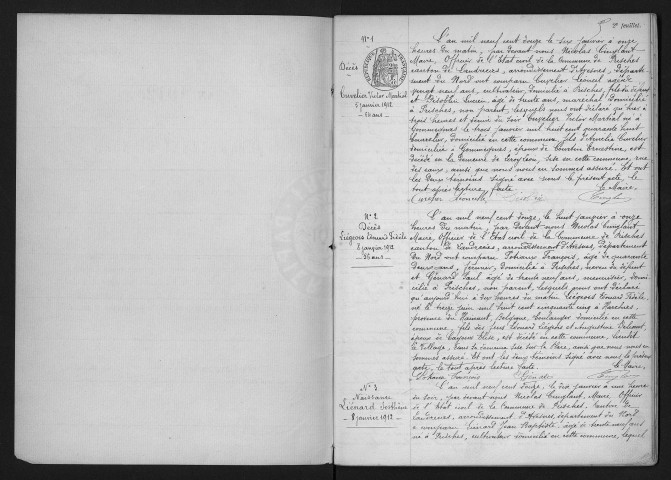 2e feuillet.
N° 1
Décès
Cuvelier Victor Martial
5 janvier 1912
L'an mil neuf cent douze le six janvier à onze
heures du matin, par devant nous Nicolas Cinglant
Maire, Officier de l'Etat civil de la commune de Prisches
canton de Landrecies, arrondissement d'Avesnes, départe-
ment du Nord ont comparu Cuvelier Léonce, agé de
vingt neuf ans, cultivateur, domicilié à Prisches, fils du défunt
et Lucien, âgé de trente ans, maréchal, domicilié
à Prisches, non parent, lesquels nous ont déclaré qu'hier à
trois heures et demie du soir Cuvelier Victor Martial né à
Gommegnies le trois janvier mil huit cent quarante huit
domicilié en cette commune, fils d'Amélie Cuvelier
domiciliée à Gommegnies, époux de Ernestine, est
décédé en la demeure de sise en cette commune, rue
des eaux, ainsi que nous nous en sommes assuré. Et ont
les deux témoins signé avec nous le présent acte, le
tout après lecture faite. Le Maire,
N° 2
Décès
Liégeois Edouard Fidèle
8 janvier 1912
L'an mil neuf cent douze, le huit janvier à onze
heures du matin, par devant nous Nicolas Cinglant
Maire, Officier de l'Etat civil de la Commune de Prisches
canton de Landrecies, arrondissement d'Avesnes, département
du Nord ont comparu François, âgé de quarante
deux ans, fermier, domicilié à Prisches, du défunt
et Génard Paul âgé de trente neuf ans, menuisier, domi-
cilié à Prisches, non parent, lesquels nous ont déclaré
qu'aujourd'hui à dix heures du matin Liégeois Edouard Fidèle
né le treize juin mil huit cent cinquante cinq à
province du Hainaut, Belgique, boulanger domicilié en cette
commune, fils des feus Edouard Liégeois et Augustine
époux de Elise, est décédé en cette commune,
le Village, dans sa demeure sise sur la Place, ainsi que nous nous en
sommes assuré. Et ont les deux témoins signé avec nous le présent
acte, le tout après lecture faite. Le Maire,
François
N° 3
Naissance
Liénard
8 janvier 1912
L'an mil neuf cent douze, le dix janvier à une heure
du soir, par devant nous Nicolas Cinglant, Maire Officier
de l'Etat civil de la Commune de Prisches, canton de
Landrecies, arrondissement d'Avesnes, département du Nord
a comparu Liénard Jean Baptiste, âgé de trente neuf ans
né à Prisches, cultivateur domicilié en cette commune, lequel